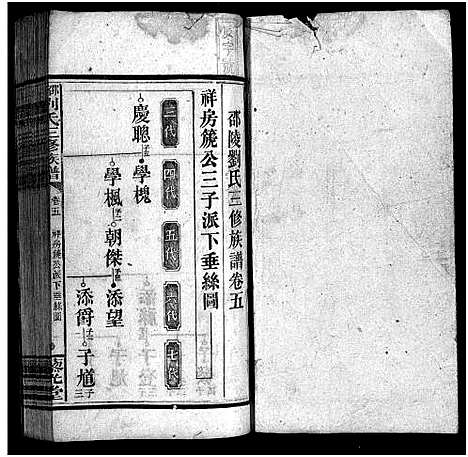 邵陵劉氏三修族譜卷五
祥房篪公三子派下垂絲圖
三代
四代
五代
六代
七代
慶聰 子五
學槐
學楓 子二
朝傑 子二
添望
添爵 子一
子尷 子三
劉氏三修族譜
卷五
祥房篪公派下垂絲圖